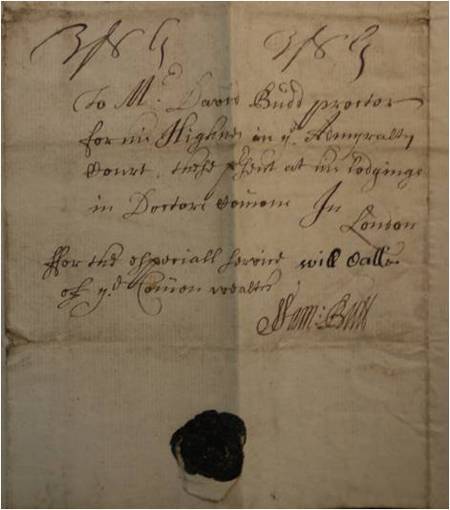 To Mr. David Budd proctor
for his Highnes in ye. Admyralty
Court, these psent at his lodginge
in Doctors Comons In
London
ffor the especiall service
of ye. Comon wealth
Sam: